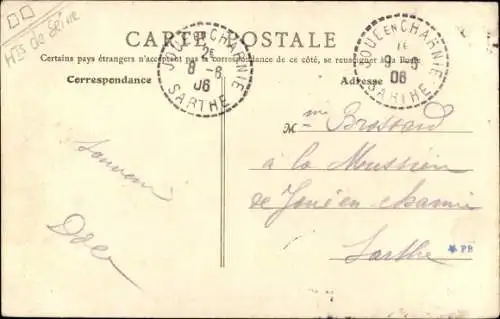 Hts de Seine
CARTE POSTALE
Certains pays étrangers n'acceptant pas la correspondance de ce côté, se renseigner à la Poste
Correspondance
Adresse
JOUÉ EN CHARNIE
2E
8 - 6
06
SARTHE
JOUÉ EN CHARNIE
06
SARTHE
Mme Brossard
à la
de Joué en charnie
Sarthe
Souvenir
PB